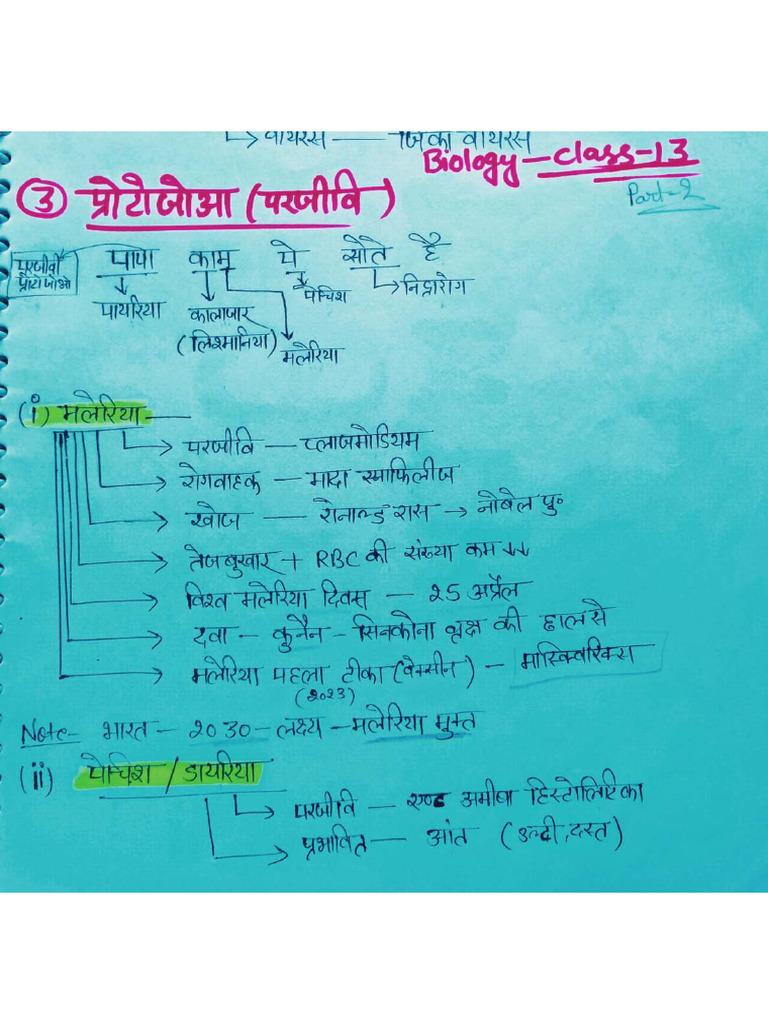 ↳ वायरस — जिका वायरस
Biology — class-13
Part-2
③ प्रोटोजोआ (परजीवि)
परजीवी प्रोटोजोआ
पापा काम पे सोते है
पायरिया कालाजार (लिश्मानिया) मलेरिया पेचिश निद्रारोग
(i) मलेरिया —
→ परजीवि — प्लाजमोडियम
→ रोगवाहक — मादा एनाफिलीज
→ खोज — रोनाल्ड रास → नोबेल पु॰
→ तेजबुखार + RBC की संख्या कम ↓↓
→ विश्व मलेरिया दिवस — 25 अप्रैल
→ दवा — कुनैन - सिनकोना वृक्ष की छाल से
→ मलेरिया पहला टीका (वैक्सीन) — मास्किवरिक्स
(2023)
Note- भारत — 2030 — लक्ष्य — मलेरिया मुक्त
(ii) पेचिश / डायरिया
→ परजीवि — एण्ट अमीबा हिस्टोलिटिका
→ प्रभावित — आंत (उल्टी, दस्त)